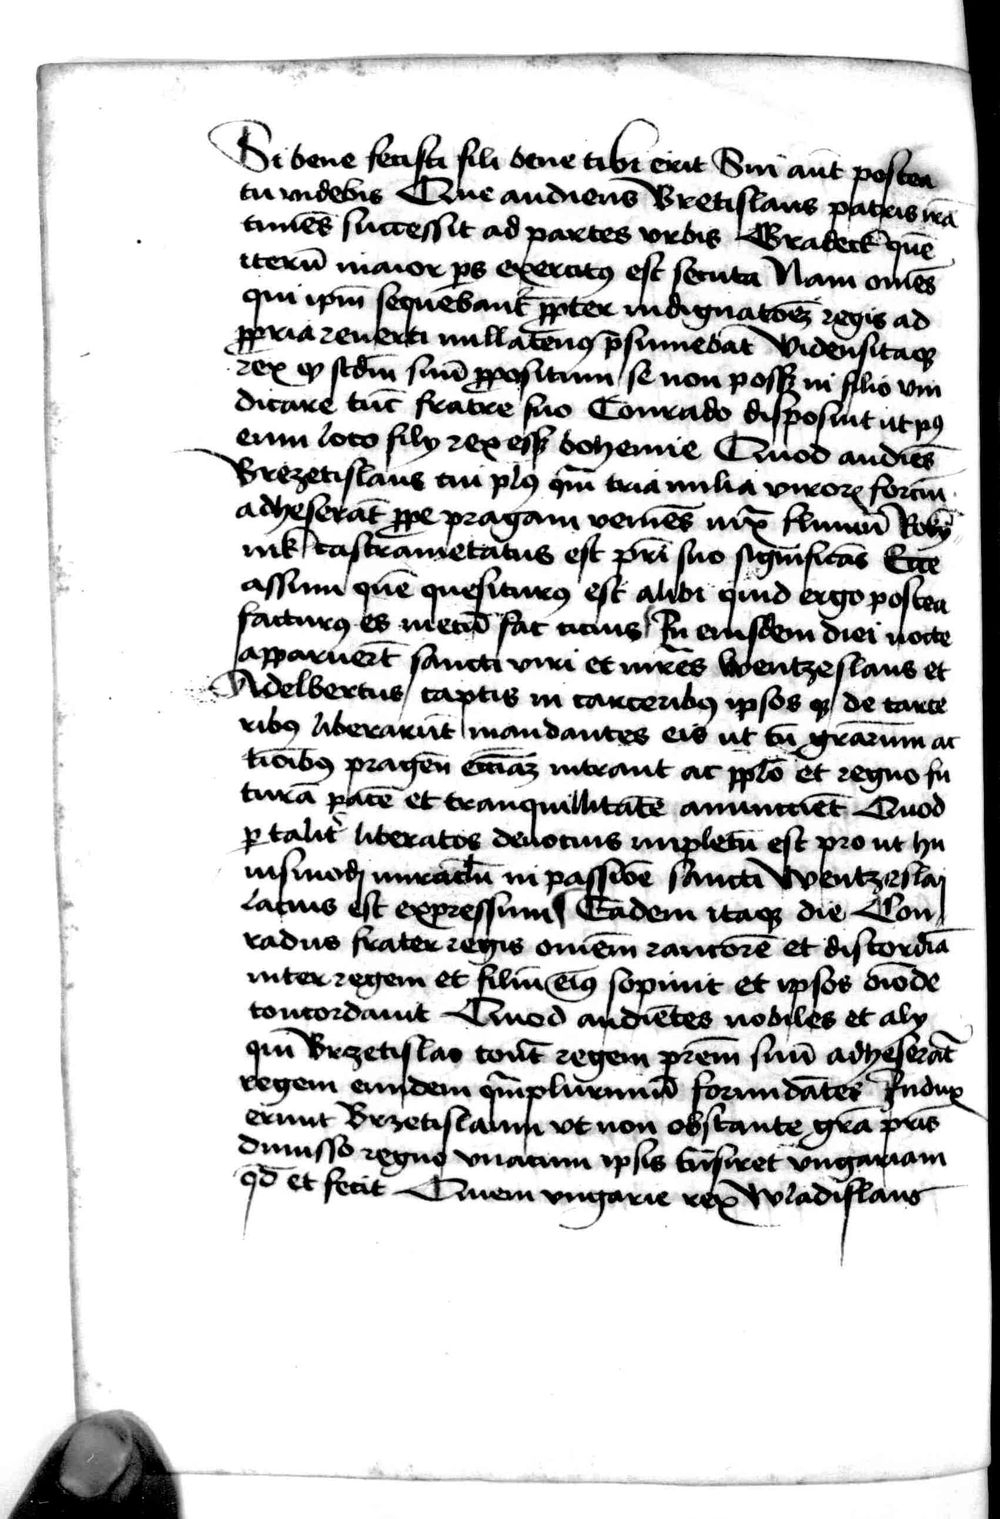 Si bene fecisti fili bene tibi erit Sin aut̄ postea
tu videbis Que audiens Bretislaus patris irā
timēs successit ad partes vrbis Gradeck quē
iterū maior ps exercitꝰ est secuta Nam om̄es
qui ipm̄ sequebant̄ ꝓpter indignatōeꝫ regis ad
ꝓpria reuerti nullatenꝰ p̄sumebāt Vidensitaqꝫ
rex ꝙ scdm̄ suū ꝓpositum se non possꝫ in filio vin
dicare tūc fratre suo Conrado disposuit ut pꝰ
eum loco filij rex essꝫ bohemie Quod audiēs
Brezetislaus cui plꝰ qm̄ tria milia viroꝝ fortiū
adheserāt ꝓpe pragam veniēs iux̄ fluuiū Roky
nik castrametatus est pr̄i suo significās Ecce
assum quē quesiturꝰ est alibi quid ergo postea
facturꝰ es mecū fac citius In eiusdem diei nocte
apparuerūt sancti viri et mr̄es Wentzeslaus et
Adelbertus captis in carceribꝰ ipsos qꝫ de carce
ribꝰ liberarūt mandantes eis ut cū gr̄arum ac
tiōibꝰ pragēn ecc̄iaꝫ intrant ac pp̄lo et regno fu
turā pacē et tranquillitatē anunccient Quod
p talit̉ liberatos deuocius impletū est pro ut hu
iusmodi miracl̄m in passiōe sancti Wentzeslai
lacius est expressum Eadem itaqꝫ die Con
radus frater regis om̄em rancorē et discordiā
inter regem et filiū eiꝰ sopiuit et ipsos
concordauit Quod audiētes nobiles et alij
qui Brzetislao cont̄ regem pr̄em suū adheserāt
regem eundem qm̄plurimū formidātes Indux
erunt Brzetislaum vt non obstante gr̄a pr̄is
dimisso regno vnacum ipsis tn̄siret vngariam
qd̄ et fecit Quem vngarie rex Wladislaus